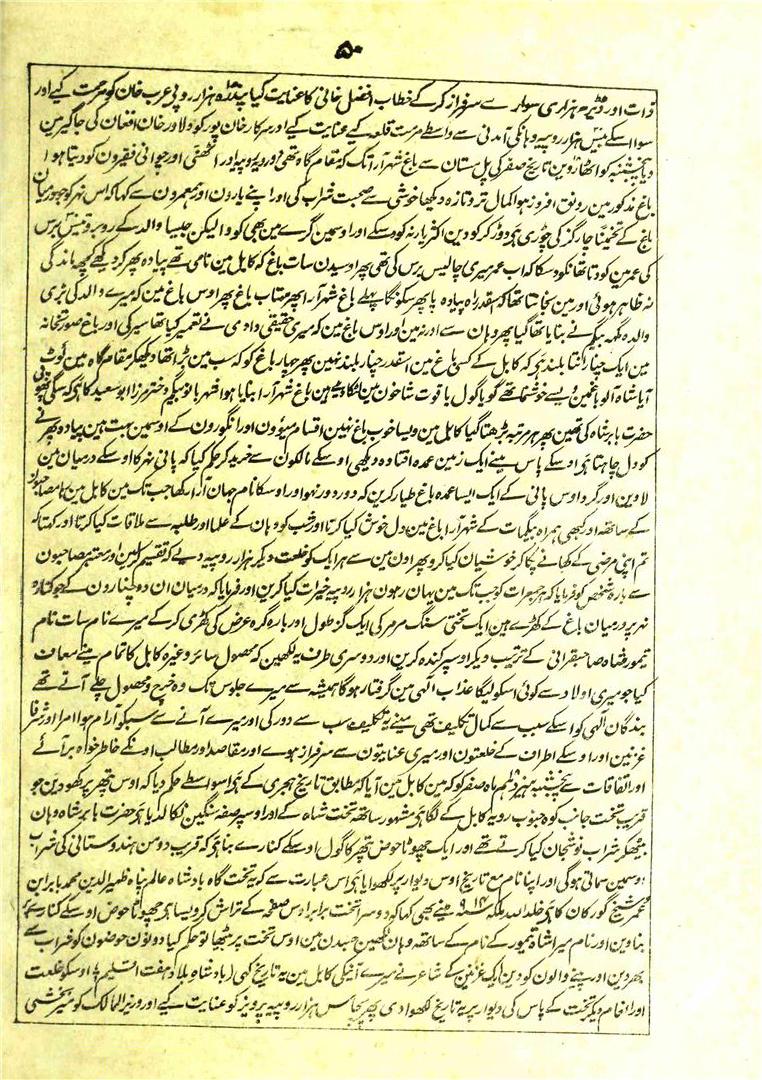 ۵۰
ذات اور ڈیڑھ ہزاری سوار سے سرفراز کرکے خطاب افضل خانی کا عنایت کیا پندرہ ہزار روپی عرب خان کو مرحمت کیے اور
سوا اسکے بیس ہزار روپیہ وہانکی آمدنی سے واسطے مرمت قلعہ کے عنایت کیے اور سرکار خان پور کو دلاور خان افغان کی جاگیر مین
دیا پنجشنبہ کو اٹھارہوین تاریخ صفر کی پل مستان سے باغ شہر آرا تک کہ مقام گاہ تھی دورویہ روپیہ اور اٹھنی اور چوانی فقیرون کو دیتا ہوا
باغ مذکور مین رونق افروز ہوا کمال تروتازہ دیکھا خوشی سے صحبت شراب کی اور اپنے یارون اور ہمعمرون سے کہا کہ اس نہر کو جو درمیان
باغ کے تخمیناً چار گز کی چوڑی ہی دوڑ کر کودین اکثر یار نہ کود سکے اور اوسمین گرے مین بھی کودا لیکن جیسا والد کے روبرو تیس برس
کی عمر مین کودتا تھا نکود سکا کہ اب عمر میری چالیس برس کی تھی پھر اوسیدن سات باغ کہ کابل مین نامی تھے پیادہ پھر کر دیکھے کچھ ماندگی
نہ ظاہر ہوئی اور مین نجانتا تھا کہ اسقدر راہ پیادہ پا پھر سکونگا پہلے باغ شہر آرا پھر مہتاب باغ پھر اوس باغ مین کہ میرے والد کی بڑی
والدہ بگہ بیگم نے بنایا تھا گیا پھر وہان سے اورتہ مین اور اوس باغ مین کہ میری حقیقی دادی نے تعمیر کیا تھا سیر کی اور باغ صورتخانہ
مین ایک چنار اتنا بلند ہی کہ کابل کے کسی باغ مین اسقدر چنار بلند نہین پھر چار باغ کو کہ سب مین بڑا تھا دیکھکر مقام گاہ مین لوٹ
آیا شاہ آلو باغ مین ایسے خوشنما تھے گویا گول یاقوت شاخون مین لٹکا ویئے ہین باغ شہر آرا بنایا ہوا شہر بانو بیگم دختر مرزا ابو سعید کا ہی کہ سگی پھوپی
حضرت بابر شاہ کی تھین پھر ہر مرتبہ بڑھتا گیا کابل مین ویسا خوب باغ نہین اقسام میوون اور انگورون کے اوسمین بہت ہین پیادہ پھرنے
کو دل چاہتا ہی اوسکے پاس مینے ایک زمین عمدہ افتادہ دیکھی اوسکے مالکون سے خرید کر حکم کیا کہ پانی نہر کا اوسکے درمیان مین
لاوین اور گرد اوس پانی کے ایک ایسا عمدہ باغ طیار کرین کہ دور دور نہو اور اوسکا نام جہان آرا رکھا جب تک مین کابل مین رہا مصاحبون
کے ساتھ اور کبھی ہمراہ بیگمات کے شہر آرا باغ مین دل خوش کیا کرتا اور شب کو وہان کے علما اور طلبہ سے ملاقات کیا کرتا اور کہتا کہ
تم اپنی مرضی کے کھانے پکا کر خوشیان کیا کرو پھر اون مین سے ہر ایک کو خلعت دیکر ہزار روپیہ دیے کہ تقسیم کرلین اور معتبر مصاحبون
سے بارہ شخص کو فرمایا کہ ہر جمعرات کو جب تک مین یہان رہون ہزار روپیہ خیرات کیا کرین اور فرمایا کہ درمیان ان دو چنارون کے جو کنارہ
نہر پر درمیان باغ کے کھڑے ہین ایک تختی سنگ مرمر کی ایک گز طول اور بارہ گرہ عرض کی کھڑی کرکے میرے نام سات نام
تیمور شاہ صاحبقرانی کے ترتیب دیکر اوسپر کندہ کرین اور دوسری طرف یہ لکھین کہ محصول سائر وغیرہ کابل کا تمام مینے معاف
کیا جو میری اولاد سے کوئی اسکو لیگا عذاب الٰہی مین گرفتار ہوگا ہمیشہ سے میرے جلوس تک وہ خرج و محصول چلے آتے تھے
بندگان الٰہی کو اسکے سبب سے کمال تکلیف تھی مینے یہ تکلیف سب سے دور کی اور میرے آنے سے سبکو آرام ہوا امرا اور شرفا
غزنین اور اوسکے اطراف کے خلعتون اور میری عنایتون سے سرفراز ہوے اور مقاصد اور مطالب اونکے خاطر خواہ بر آئے
اور اتفاقات سے پنجشنبہ ہیزدہم ماہ صفر کو کہ مین کابل مین آیا کہ مطابق تاریخ ہجری کے ہی اسواسطے حکم دیا کہ اوس پتھر پر کھودین جو
قریب تخت جانب کوہ جنوب رویہ کابل کے لگا ہی مشہور ساتھ تخت شاہ کے اور اوسپر صفہ سنگین نکالکر دیا ہی حضرت بابر شاہ وہان
بیٹھکر شراب نوشجان کیا کرتے تھے اور ایک چھوٹا حوض پتھر کا گول اوسکے کنارے بنا ہی کہ قریب دو من ہندوستانی کی شراب
اوسمین سماتی ہوگی اور اپنا نام مع تاریخ اوس دیوار پر لکھوایا ہی اس عبارت سے کہ یہ تخت گاہ بادشاہ عالم پناہ ظہیر الدین محمد بابر ابن
عمر شیخ گورگان کا ہی خلد اللہ ملکہ ۹۱۴ سنہ مینے بھی کہا کہ دوسرا تخت برابر اوس صفحہ کے تراش کر ویسا ہی چھوٹا حوض اوسکے کنارے
بناوین اور نام میرا شاہ تیمور کے نام کے ساتھ وہان لکھین جسدن مین اوس تخت پر بیٹھا تو حکم کیا دونون حوضون کو شراب سے
بھر دین اور پینے والون کو دین ایک غزنین کے شاعر نے میرے آنیکی کابل مین یہ تاریخ کہی (بادشاہ بلاد ہفت اقلیم) اوسکو خلعت
اور انعام دیکر تخت کے پاس کی دیوار پر یہ تاریخ لکھوا دی پھر پچاس ہزار روپیہ پرویز کو عنایت کیے اور وزیر الممالک کو میر بخشی